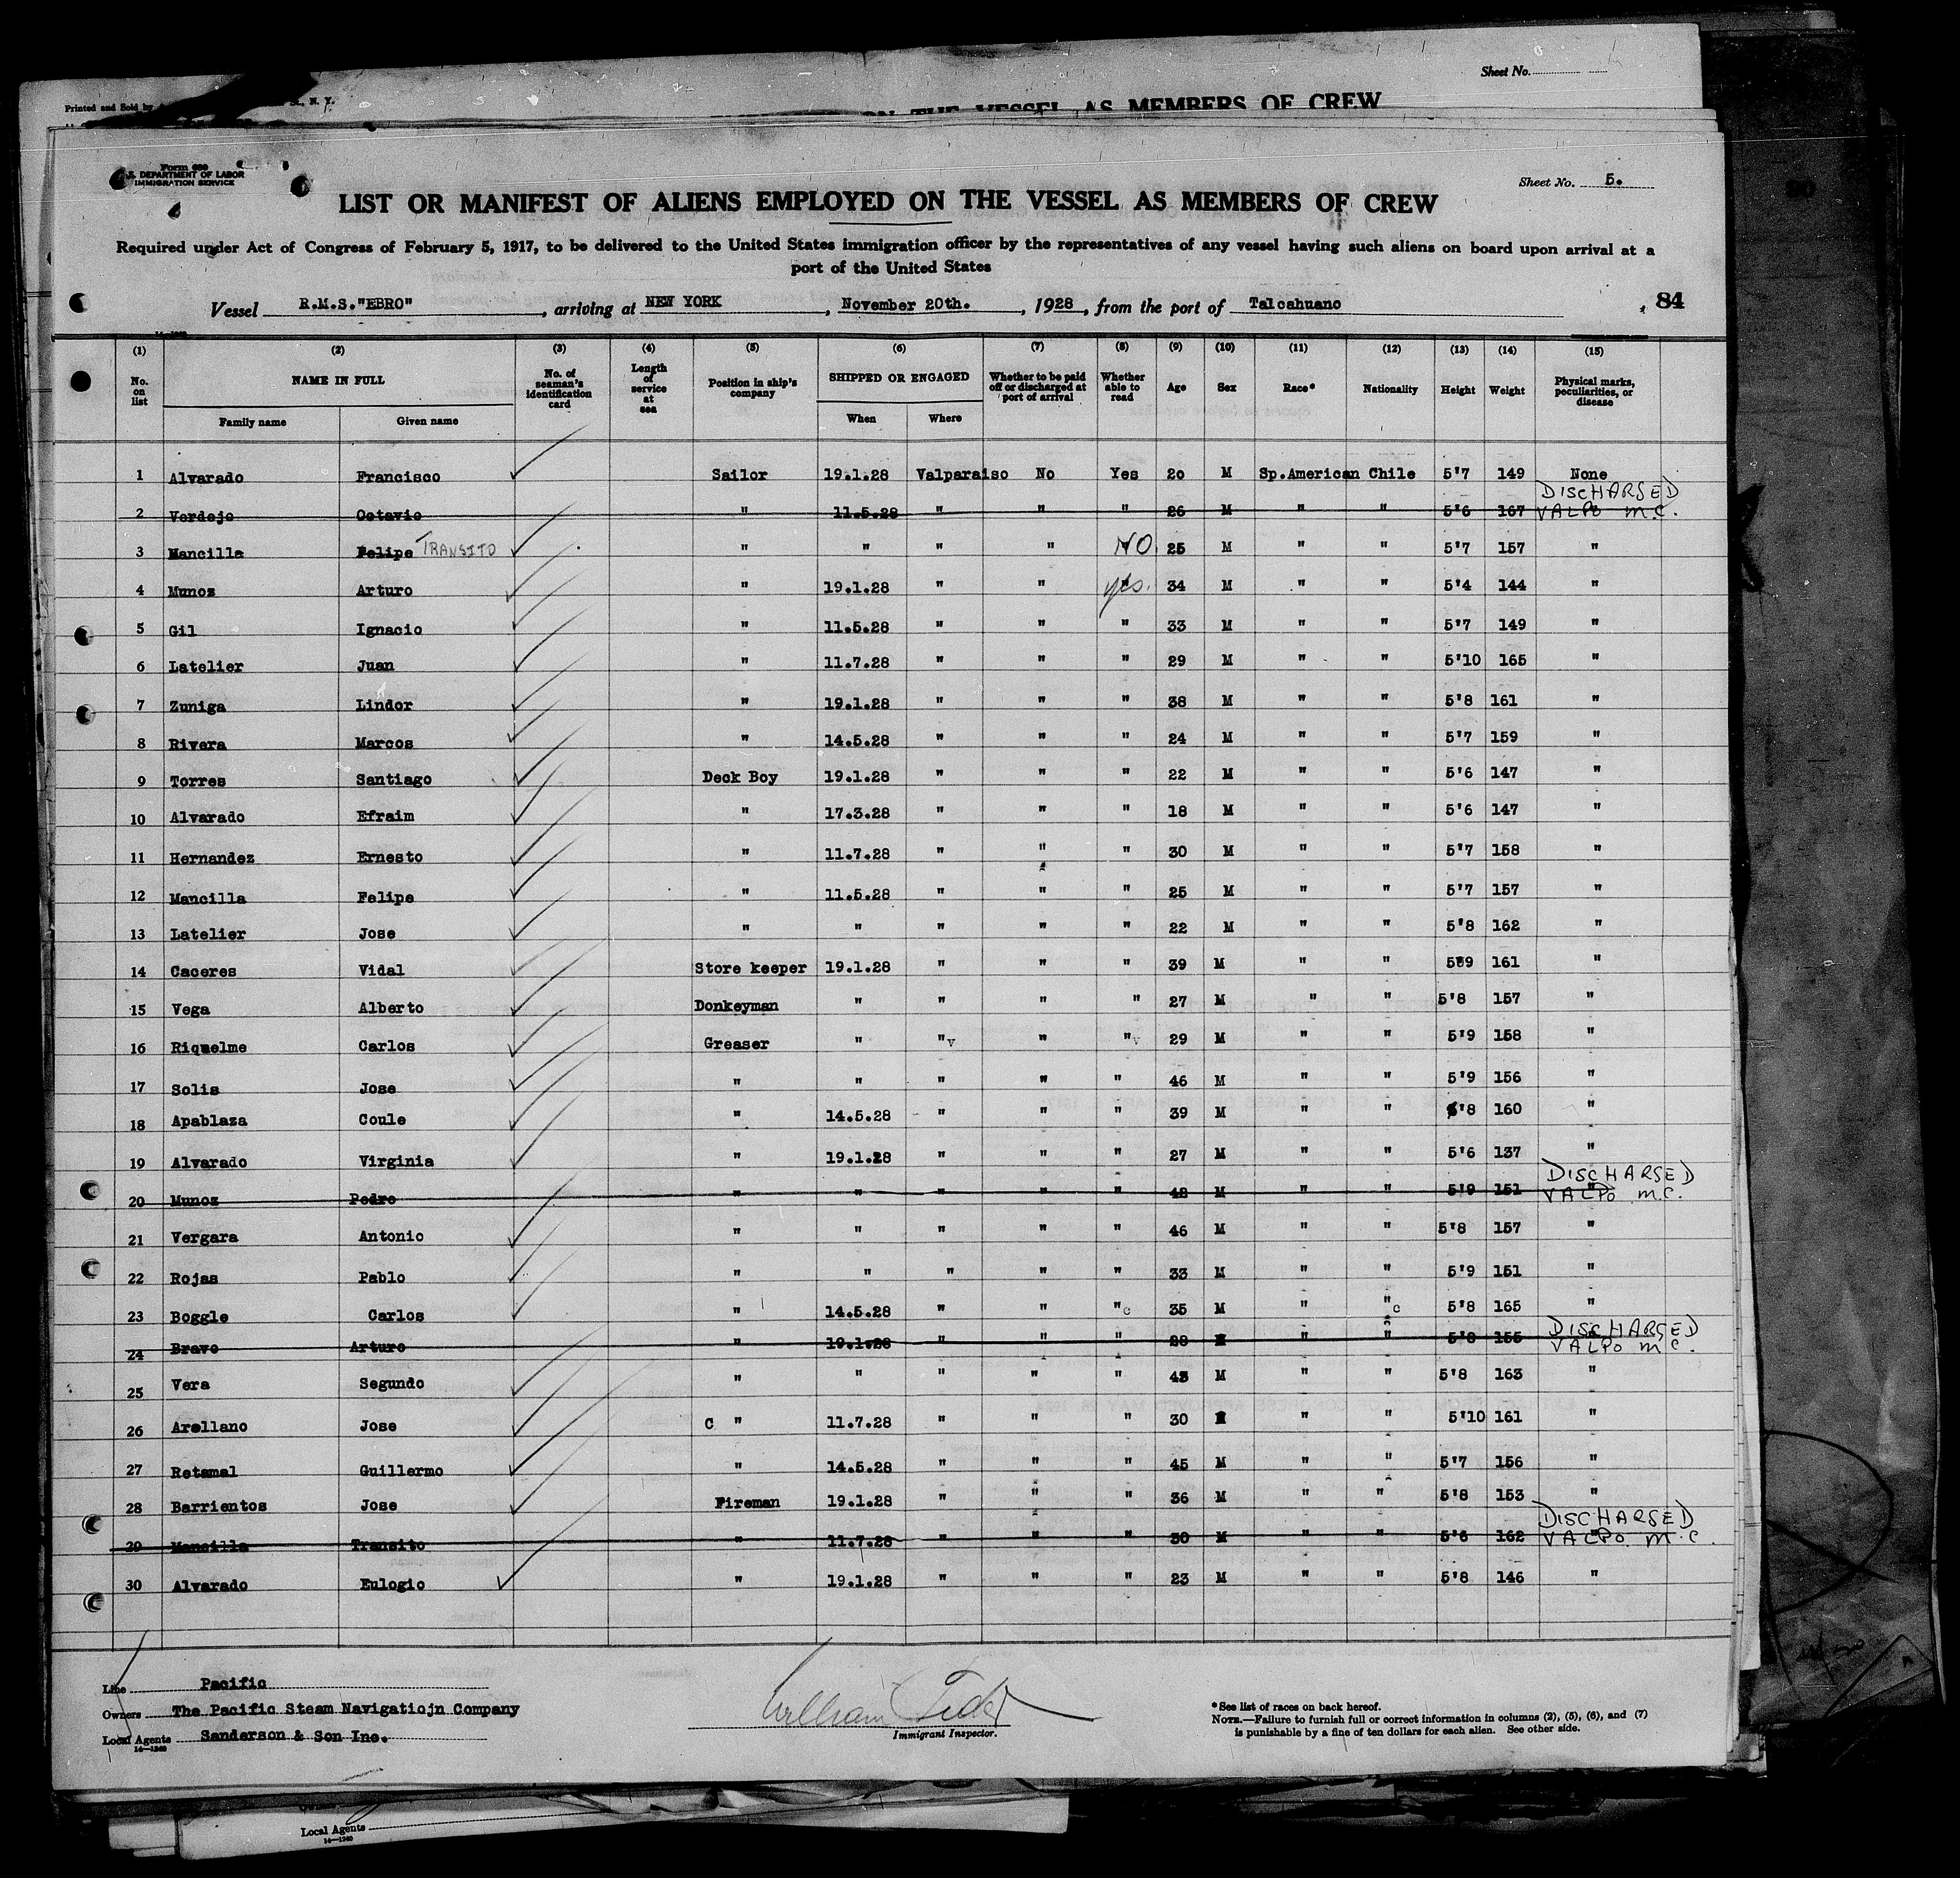 Sheet No.
Printed and Sold by
N. Y.
ON THE VESSEL AS MEMBERS OF CREW
Form 680
U. S. DEPARTMENT OF LABOR
IMMIGRATION SERVICE
Sheet No. 5.
LIST OR MANIFEST OF ALIENS EMPLOYED ON THE VESSEL AS MEMBERS OF CREW
Required under Act of Congress of February 5, 1917, to be delivered to the United States immigration officer by the representatives of any vessel having such aliens on board upon arrival at a
port of the United States
Vessel R.M.S."EBRO", arriving at NEW YORK, November 20th., 1928, from the port of Talcahuano, 84
(1) (2) (3) (4) (5) (6) (7) (8) (9) (10) (11) (12) (13) (14) (15)
No. on list NAME IN FULL Family name Given name No. of seaman's identification card Length of service at sea Position in ship's company SHIPPED OR ENGAGED When Where Whether to be paid off or discharged at port of arrival Whether able to read Age Sex Race* Nationality Height Weight Physical marks, peculiarities, or disease
1 Alvarado Francisco Sailor 19.1.28 Valparaiso No Yes 20 M Sp.American Chile 5'7 149 None
2 Verdejo Octavio " 11.5.28 " " " 26 M " " 5'6 167 " DISCHARGED VALPO M.C.
3 Mancilla Felipe TRANSITO " " " " NO. 25 M " " 5'7 157 "
4 Munoz Arturo " 19.1.28 " " yes. 34 M " " 5'4 144 "
5 Gil Ignacio " 11.5.28 " " " 33 M " " 5'7 149 "
6 Latelier Juan " 11.7.28 " " " 29 M " " 5'10 165 "
7 Zuniga Lindor " 19.1.28 " " " 38 M " " 5'8 161 "
8 Rivera Marcos " 14.5.28 " " " 24 M " " 5'7 159 "
9 Torres Santiago Deck Boy 19.1.28 " " " 22 M " " 5'6 147 "
10 Alvarado Efraim " 17.3.28 " " " 18 M " " 5'6 147 "
11 Hernandez Ernesto " 11.7.28 " " " 30 M " " 5'7 158 "
12 Mancilla Felipe " 11.5.28 " " " 25 M " " 5'7 157 "
13 Latelier Jose " " " " " 22 M " " 5'8 162 "
14 Caceres Vidal Store keeper 19.1.28 " " " 39 M " " 589 161 "
15 Vega Alberto Donkeyman " " " " 27 M " " 5'8 157 "
16 Riquelme Carlos Greaser " "v " "v 29 M " " 5'9 158 "
17 Solis Jose " " " " " 46 M " " 5'9 156 "
18 Apablaza Coule " 14.5.28 " " " 39 M " " 5'8 160 "
19 Alvarado Virginia " 19.1.28 " " " 27 M " " 5'6 137 "
20 Munoz Pedro " " " " " 42 M " " 5'9 151 " DISCHARGED VALPO M.C.
21 Vergara Antonio " " " " " 46 M " " 5'8 157 "
22 Rojas Pablo " " " " " 33 M " " 5'9 151 "
23 Boggle Carlos " 14.5.28 " " "c 35 M " "c 5'8 165 "
24 Bravo Arturo " 19.1.28 " " " 28 M " " 5'8 155 DISCHARGED VALPO M C.
25 Vera Segundo " " " " " 43 M " " 5'8 163 "
26 Arellano Jose C " 11.7.28 " " " 30 M " " 5'10 161 "
27 Retamal Guillermo " 14.5.28 " " " 45 M " " 5'7 156 "
28 Barrientos Jose Fireman 19.1.28 " " " 36 M " " 5'8 153 "
29 Mancilla Transito " 11.7.28 " " " 30 M " " 5'6 162 " DISCHARGED VALPO. M.C.
30 Alvarado Eulogio " 19.1.28 " " " 23 M " " 5'8 146 "
Line Pacific
Owners The Pacific Steam Navigatiojn Company
Local Agents Sanderson & Son Inc.
14—1240
William
Immigrant Inspector.
*See list of races on back hereof.
NOTE.—Failure to furnish full or correct information in columns (2), (5), (6), and (7)
is punishable by a fine of ten dollars for each alien. See other side.
Local Agents
14—1240